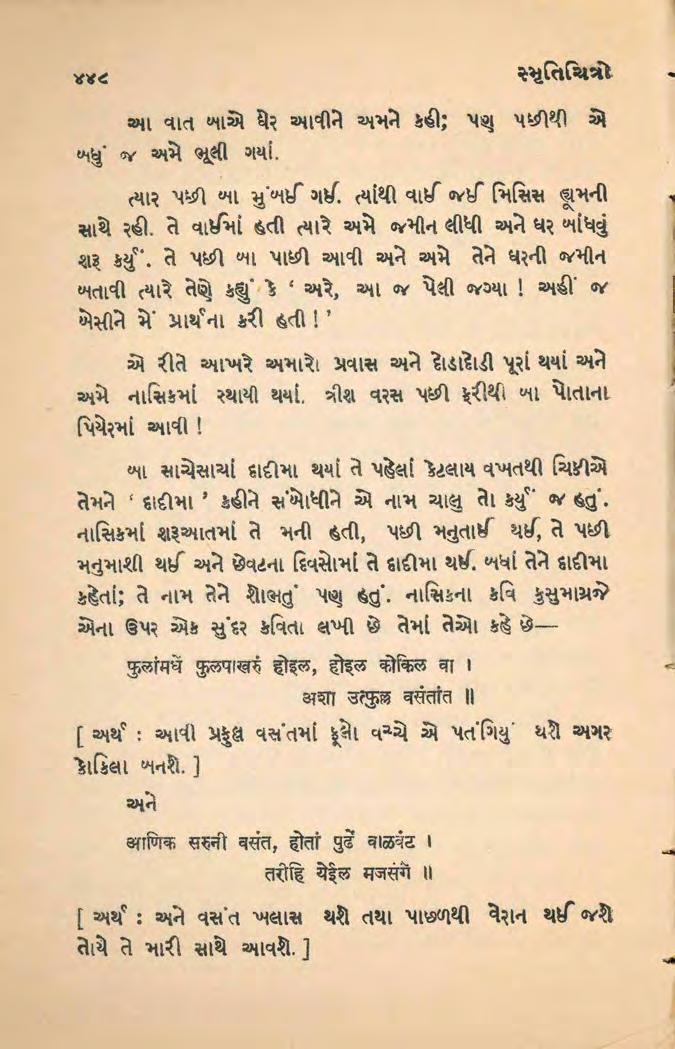 ૪૪૮ સ્મૃતિચિત્રો
આ વાત બાએ ઘેર આવીને અમને કહી; પણ પછીથી એ
બધું જ અમે ભૂલી ગયાં.
ત્યાર પછી બા મુંબઈ ગઈ. ત્યાંથી વાઈ જઈ મિસિસ હ્યૂમની
સાથે રહી. તે વાઈમાં હતી ત્યારે અમે જમીન લીધી અને ઘર બાંધવું
શરૂ કર્યું. તે પછી બા પાછી આવી અને અમે તેને ઘરની જમીન
બતાવી ત્યારે તેણે કહ્યું કે ‘ અરે, આ જ પેલી જગ્યા ! અહીં જ
બેસીને મેં પ્રાર્થના કરી હતી ! ’
એ રીતે આખરે અમારો પ્રવાસ અને દોડાદોડી પૂરાં થયાં અને
અમે નાસિકમાં સ્થાયી થયાં. ત્રીશ વરસ પછી ફરીથી બા પોતાના
પિયેરમાં આવી !
બા સાચેસાચાં દાદીમા થયાં તે પહેલાં કેટલાય વખતથી ચિકીએ
તેમને ‘ દાદીમા ’ કહીને સંબોધીને એ નામ ચાલુ તો કર્યું જ હતું.
નાસિકમાં શરૂઆતમાં તે મની હતી, પછી મનુતાઈ થઈ, તે પછી
મનુમાશી થઈ અને છેવટના દિવસોમાં તે દાદીમા થઈ. બધાં તેને દાદીમા
કહેતાં; તે નામ તેને શોભતું પણ હતું. નાસિકના કવિ કુસુમાગ્રજે
એના ઉપર એક સુંદર કવિતા લખી છે તેમાં તેઓ કહે છે—
फुलांमधें फुलपाखरुं होइल, होइल कोकिल वा ।
अशा उत्फुल्ल वसंतांत ॥
[ અર્થ : આવી પ્રફુલ્લ વસંતમાં ફૂલો વચ્ચે એ પતંગિયું થશે અગર
કોકિલા બનશે. ]
અને
आणिक सरुनी वसंत, होतां पुढें वाळवंट ।
तरीहि येईल मजसंगें ॥
[ અર્થ : અને વસંત ખલાસ થશે તથા પાછળથી વેરાન થઈ જશે
તોયે તે મારી સાથે આવશે. ]